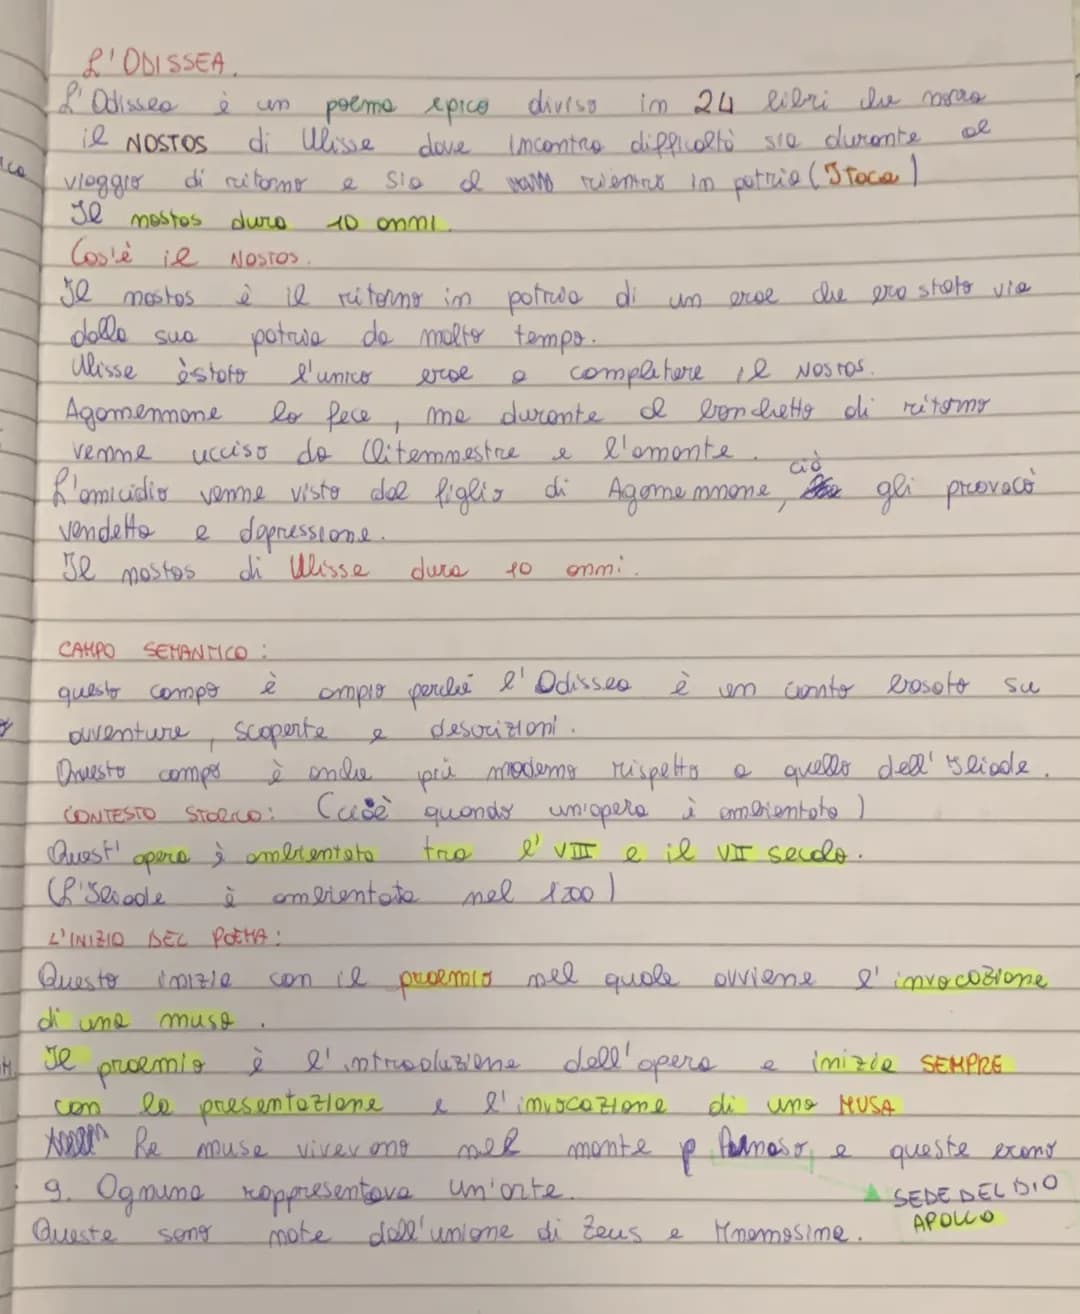 L'ODISSEA.
L'Odissea è un poema epico diviso in 24 libri che narra
il NOSTOS di Ulisse dove incontra difficoltà sia durante al
viaggio di ritorno e sia al rientro in patria (Itaca)
Il nostos dura 10 anni.
Cos'è il NOSTOS.
Il nostos è il ritorno in patria di un eroe che era stato via
dalla sua patria da molto tempo.
Ulisse è stato l'unico eroe a completare il NOSTOS.
Agamennone lo fece, ma durante al banchetto di ritorno
venne ucciso da Clitemnestre e l'amante.
L'omicidio venne visto dal figlio di Agamennone, ciò gli provocò
vendetta e depressione.
Il nostos di Ulisse dura 10 anni.
CAMPO SEMANTICO:
questo campo è ampio perché l'Odissea è un canto basato su
avventure, scoperte e descrizioni.
Questo campo è anche più moderno rispetto a quello dell'Iliade.
CONTESTO STORICO: (cioè quando un'opera è ambientata)
Quest'opera è ambientata tra l'VIII e il VII secolo.
(L'Iliade è ambientata nel 1200)
L'INIZIO DEL POEMA:
Questo inizia con il proemio nel quale avviene l'invocazione
di una musa.
Il proemio è l'introduzione dell'opera e inizia SEMPRE
con la presentazione e l'invocazione di una MUSA
Le muse vivevano nel monte Parnaso, e queste erano
9. Ognuna rappresentava un'arte.
SEDE DEL DIO
APOLLO
Queste sono nate dall'unione di Zeus e Mnemosine.